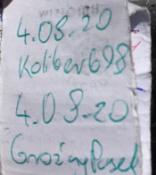 4.08.20
Koliber698
4.08.20
GroźnyPaseł